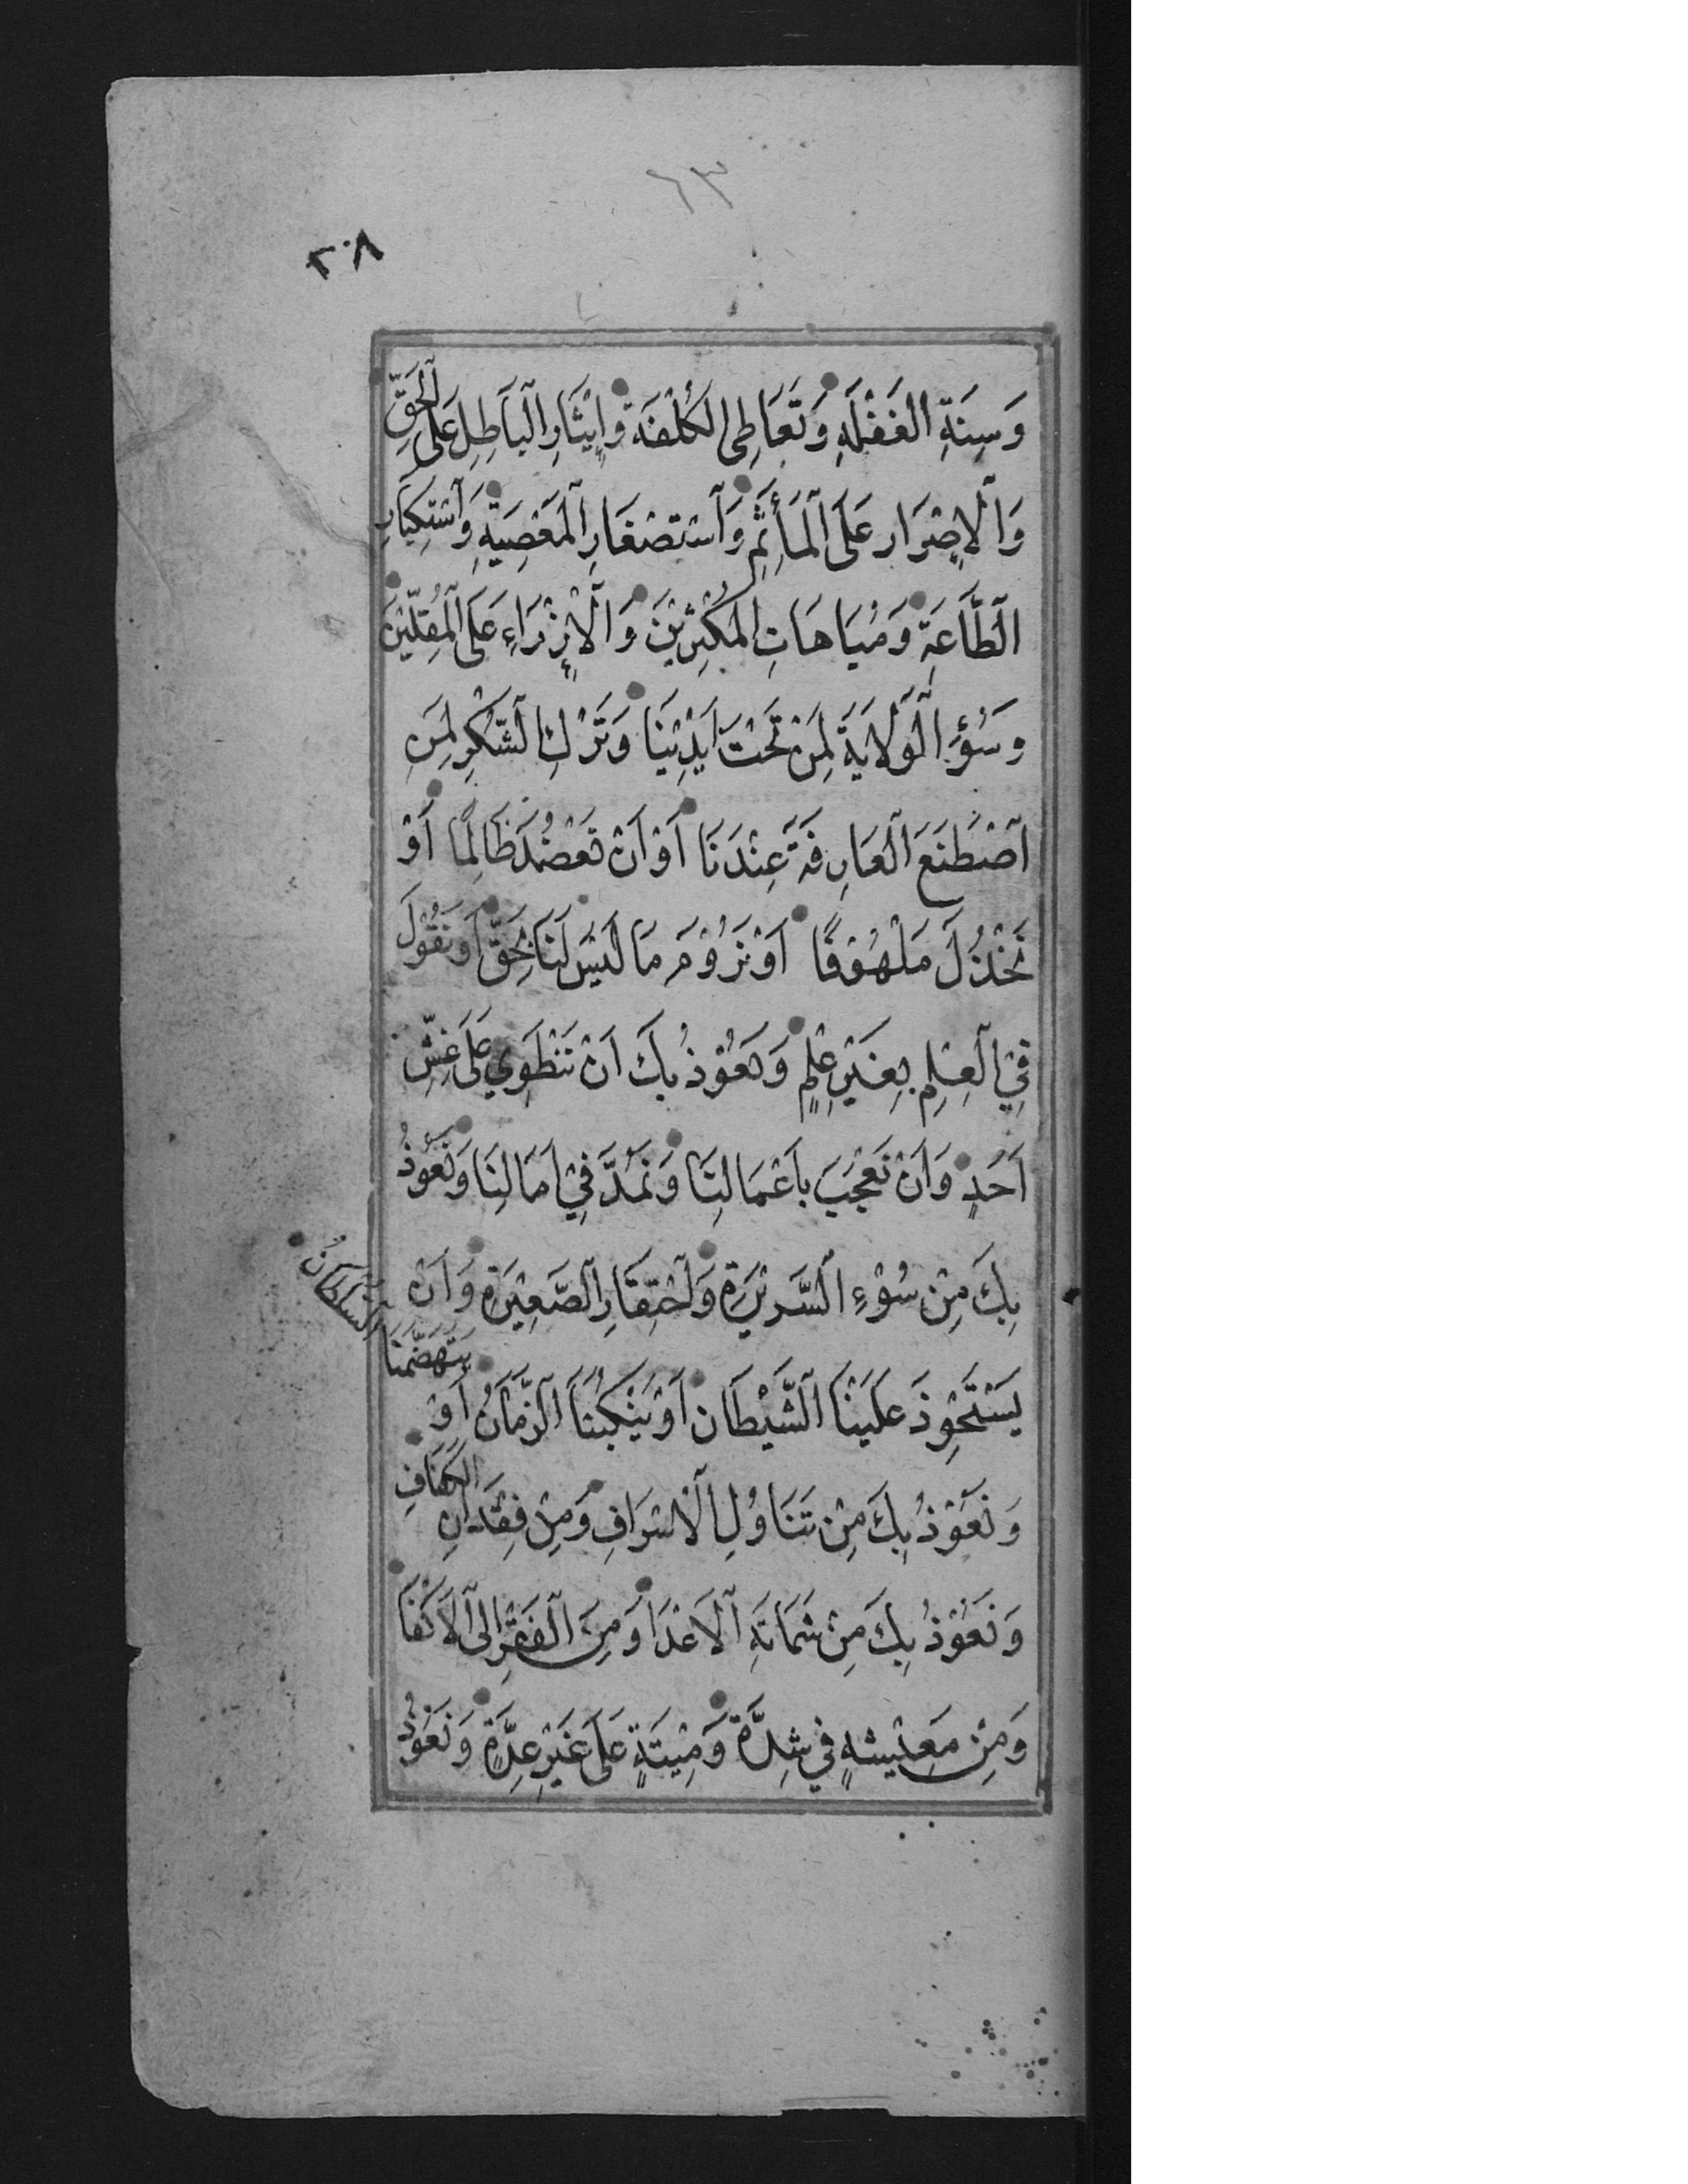 ٦٣
٢٠٨
وَسِنَةِ الغَفْلَةِ وَتَعَاطِى الكُلْفَةِ وَإِيْثَارِ الْبَاطِلِ عَلَى الْحَقِّ
وَالْاِصْرَارِ عَلَى الْمَأْثَمِ وَاسْتِصْغَارِ الْمَعْصِيَةِ وَاسْتِكْبَارِ
الطَّاعَةِ وَمُبَاهَاتِ المُكْثِرِيْنَ وَالْإِزْرَاءِ عَلَى الْمُقِلِّيْنَ
وَسُؤِ الْوَلَايَةِ لِمَنْ تَحْتَ اَيْدِيْنَا وَتَرْكِ الشُّكْرِ لِمَنِ
اصْطَنَعَ الْعَارِفَةَ عِنْدَنَا اَوْ اَنْ نَعْضُدَ ظَالِمًا اَوْ
نَخْذُلَ مَلْهُوْفًا اَوْ نَرُوْمَ مَا لَيْسَ لَنَا بِحَقٍّ اَوْ نَقُوْلَ
فِي الْعِلْمِ بِغَيْرِ عِلْمٍ وَنَعُوْذُ بِكَ اَنْ نَنْطَوِيَ عَلَى غِشِّ
اَحَدٍ وَاَنْ نُعْجِبَ بِاَعْمَالِنَا وَنَمُدَّ فِيْ اٰمَالِنَا وَنَعُوْذُ
بِكَ مِنْ سُوْءِ السَّرِيْرَةِ وَاحْتِقَارِ الصَّغِيْرَةِ وَاَنْ
يَسْتَحْوِذَ عَلَيْنَا الشَّيْطَانُ اَوْ يَنْكُبَنَا الزَّمَانُ اَوْ يَتَهَضَّمَنَا السُّلْطَانُ
وَنَعُوْذُ بِكَ مِنْ تَنَاوُلِ الْاِسْرَافِ وَمِنْ فِقْدَانِ الكَفَافِ
وَنَعُوْذُ بِكَ مِنْ شَمَاتَةِ الْاَعْدَا وَمِنَ الْفَقْرِ اِلَى الْاَكْفَا
وَمِنْ مَعِيْشَةٍ فِي شِدَّةٍ وَمِيْتَةٍ عَلَى غَيْرِ عِدَّةٍ وَنَعُوْذُ